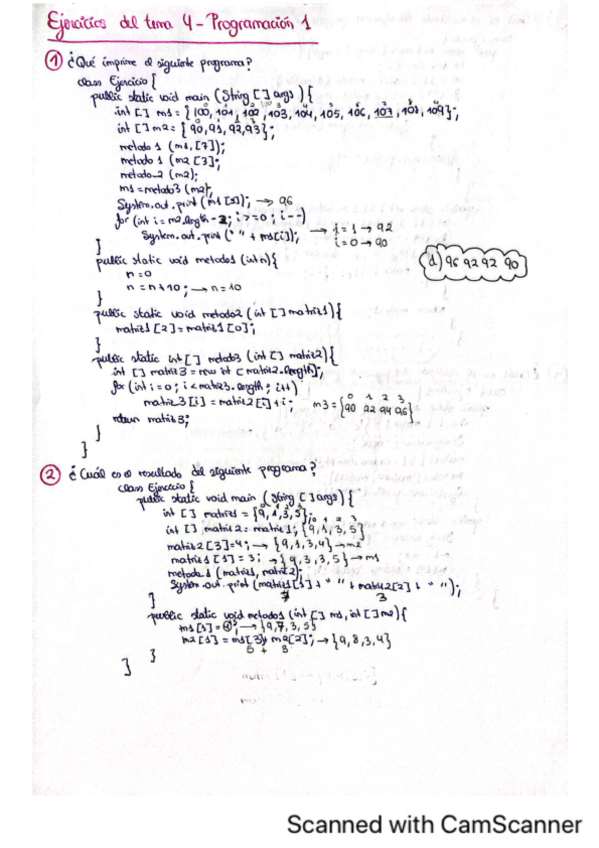 Ejercicios del tema 4 - Programación 1
① ¿Qué imprime el siguiente programa?
class Ejercicio {
public static void main (String [] args) {
int [] ms = {100, 101, 102, 103, 104, 105, 106, 107, 108, 109};
int [] m2 = {90, 91, 92, 93};
metodo 1 (ms, [7]);
metodo 1 (m2 [3];
metodo_2 (m2);
ms = metodo3 (m2);
System.out.print (ms [3]); → 96
for (int i = m2.length - 2; i >= 0; i--)
System.out.print (" " + ms[i]); → i = 1 → 92
i = 0 → 90
}
d) 96 92 92 90
public static void metodo1 (int n) {
n = 0
n = n + 10; → n = 10
}
public static void metodo2 (int [] matriz1) {
matriz1 [2] = matriz1 [0];
}
public static int [] metodo3 (int [] matriz2) {
int [] matriz3 = new int [matriz2.length];
for (int i = 0; i < matriz3.length; i++)
matriz3 [i] = matriz2 [i] + i; m3 = {90 92 94 96}
0 1 2 3
return matriz3;
}
}
② ¿Cuál es el resultado del siguiente programa?
class Ejercicio {
public static void main (String [] args) {
int [] matriz1 = {9, 1, 3, 5};
int [] matriz2 = matriz1; {9, 1, 3, 5}
0 1 2 3
matriz2 [3] = 4; → {9, 1, 3, 4} → m2
matriz1 [1] = 3; → {9, 3, 3, 5} → m1
metodo1 (matriz1, matriz2);
System.out.print (matriz1 [1] + " " + matriz2 [2] + " ");
7 3
}
public static void metodo1 (int [] m1, int [] m2) {
→ {9, 7, 3, 5}
m2 [1] = m1 [3] + m2 [2]; → {9, 8, 3, 4}
5 + 3
}
}
Scanned with CamScanner